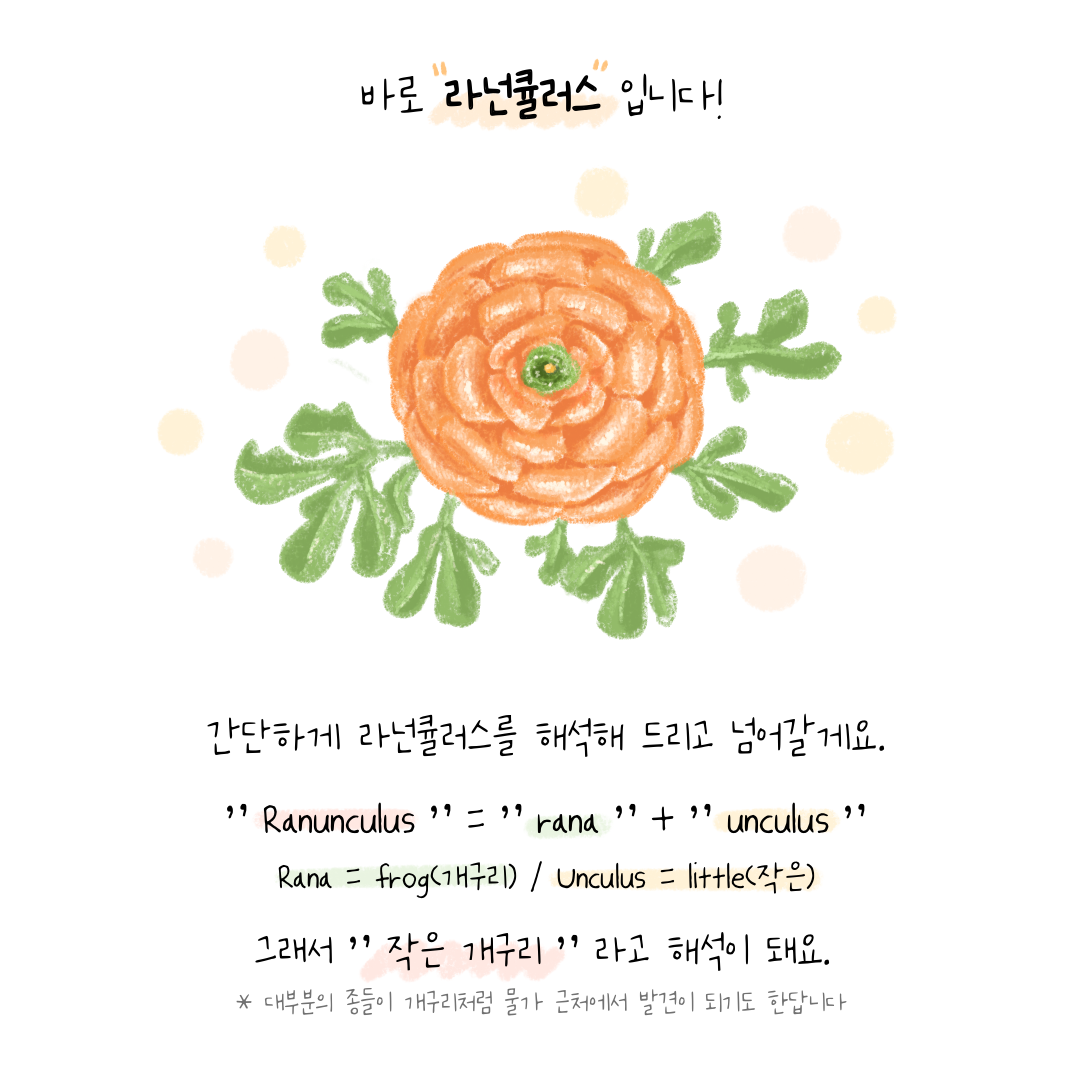 바로 "라넌큘러스" 입니다!
간단하게 라넌큘러스를 해석해 드리고 넘어갈게요.
" Ranunculus " = " rana " + " unculus "
Rana = frog(개구리) / Unculus = little(작은)
그래서 " 작은 개구리 " 라고 해석이 돼요.
* 대부분의 종들이 개구리처럼 물가 근처에서 발견이 되기도 한답니다